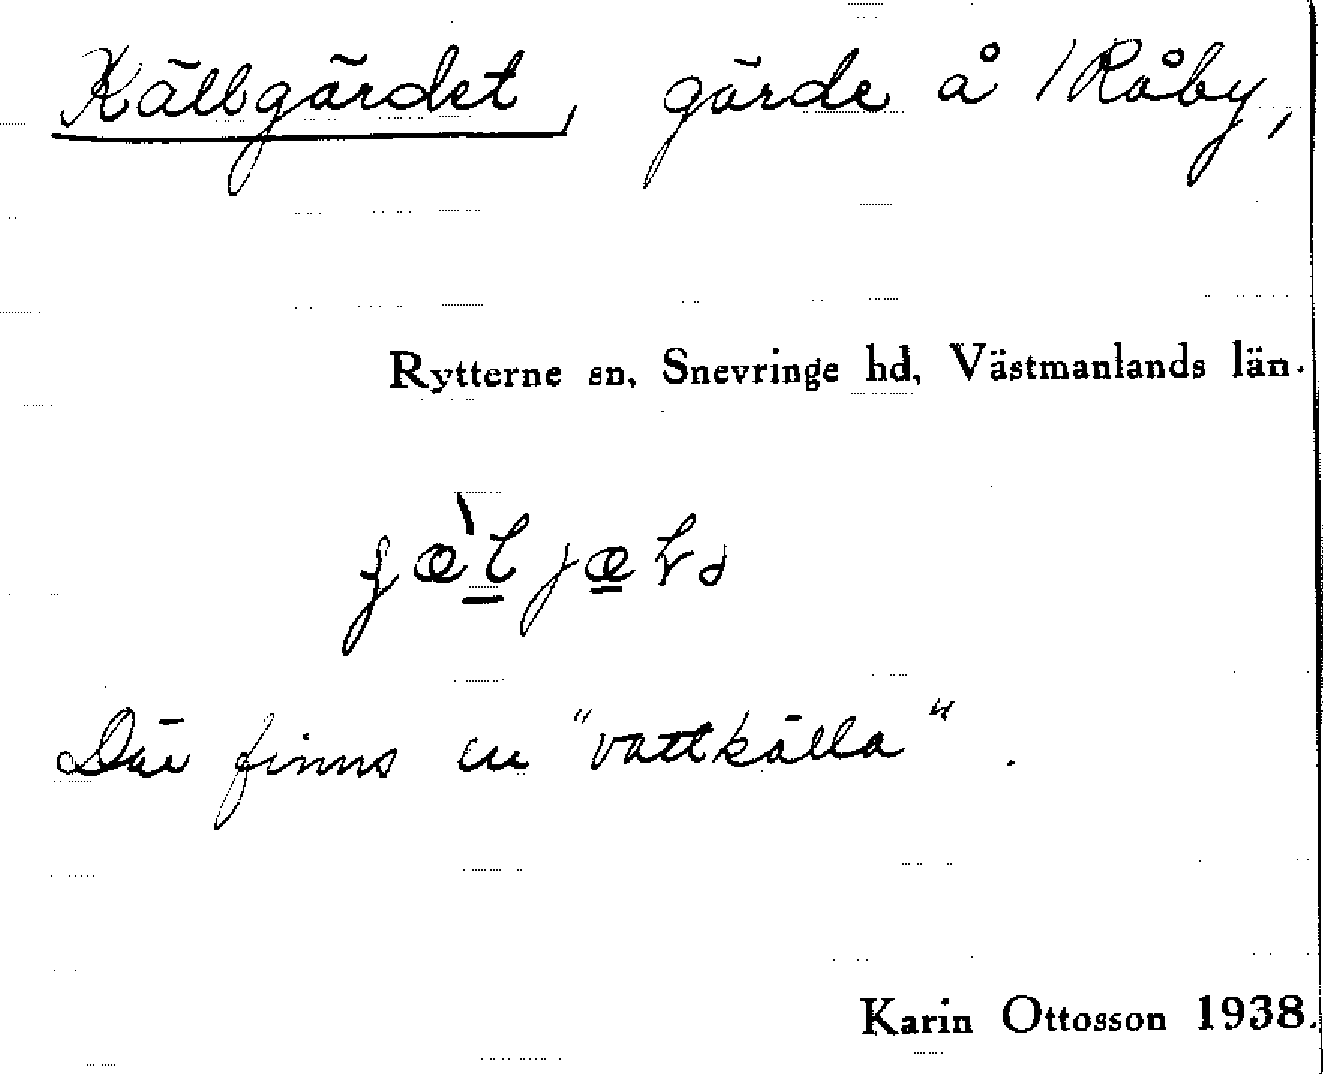 Källgärdet, gärde å Råby,
Rytterne sn, Snevringe hd, Västmanlands län.
Där finns en "vattkälla".
Karin Ottosson 1938.